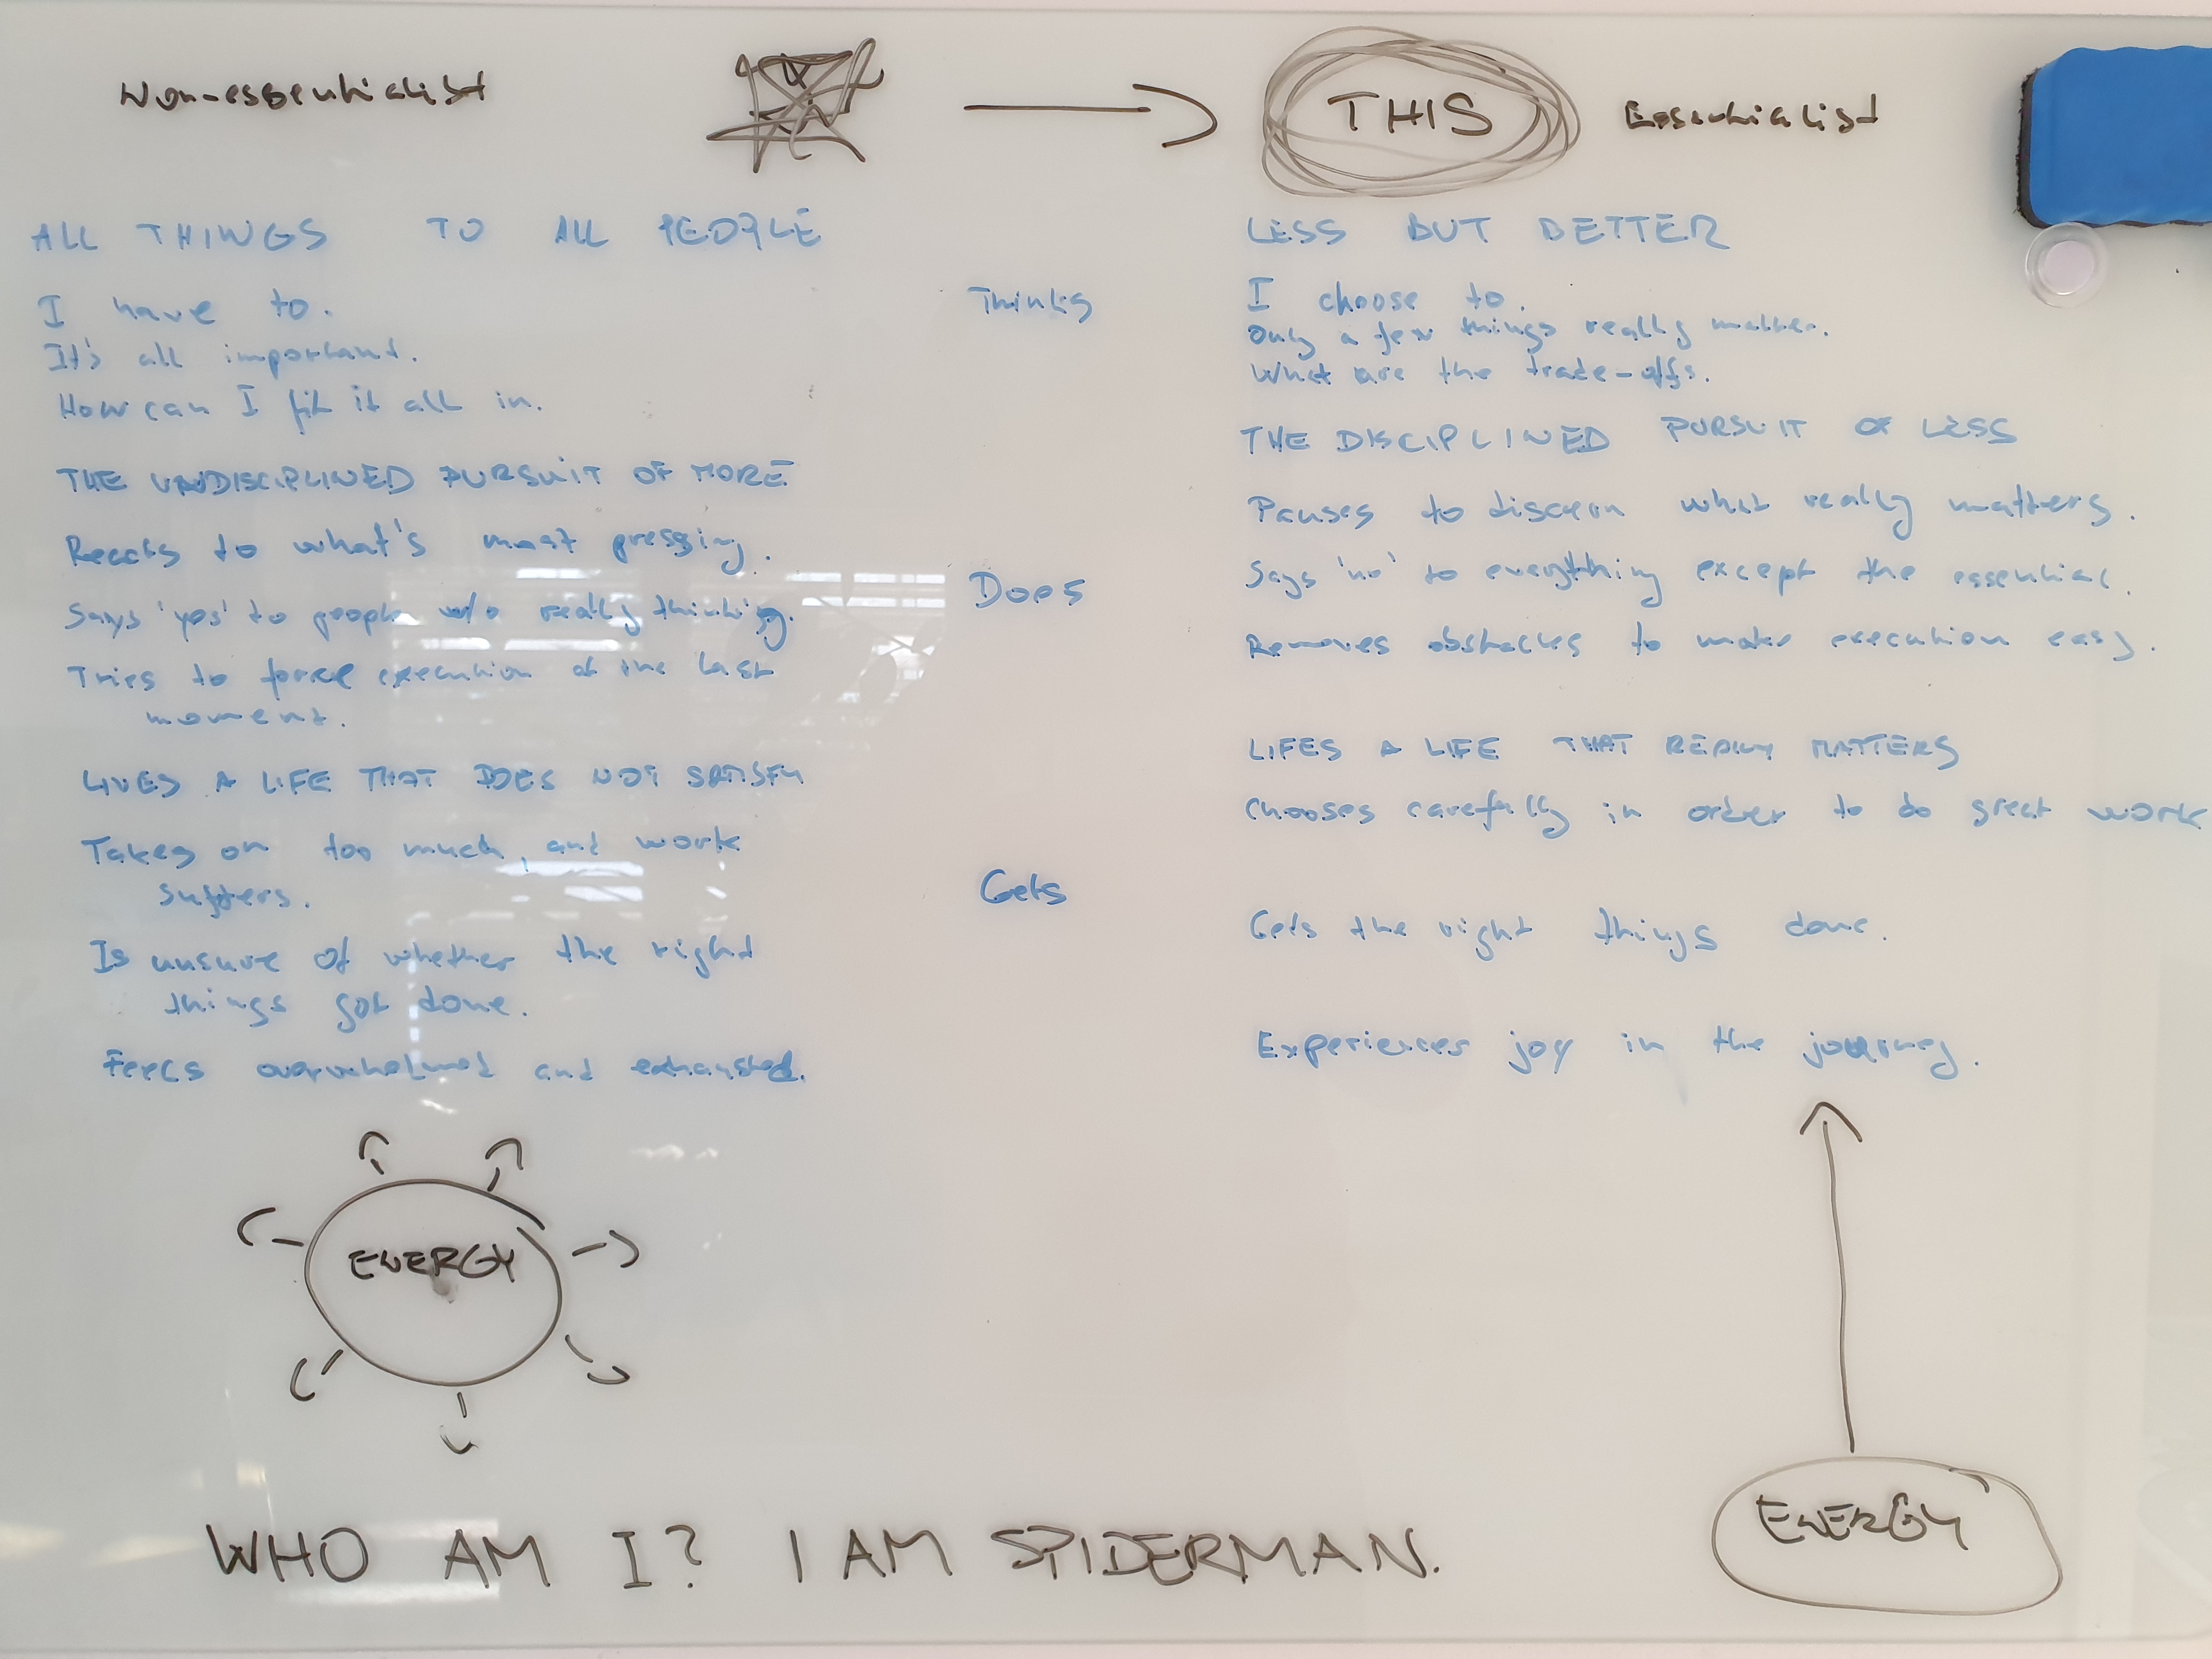 Non-essentialist
THIS
Essentialist
ALL THINGS TO ALL PEOPLE
I have to.
It's all important.
How can I fit it all in.
THE UNDISCIPLINED PURSUIT OF MORE
Reacts to what's most pressing.
Says 'yes' to people w/o really thinking.
Tries to force execution at the last
moment.
LIVES A LIFE THAT DOES NOT SATISFY
Takes on too much, and work
suffers.
Is unsure of whether the right
things got done.
Feels overwhelmed and exhausted.
ENERGY
Thinks
Does
Gets
LESS BUT BETTER
I choose to.
Only a few things really matter.
What are the trade-offs.
THE DISCIPLINED PURSUIT OF LESS
Pauses to discern what really matters.
Says 'no' to everything except the essential.
Removes obstacles to make execution easy.
LIFES A LIFE THAT REALLY MATTERS
Chooses carefully in order to do great work
Gets the right things done.
Experiences joy in the journey.
ENERGY
WHO AM I? I AM SPIDERMAN.